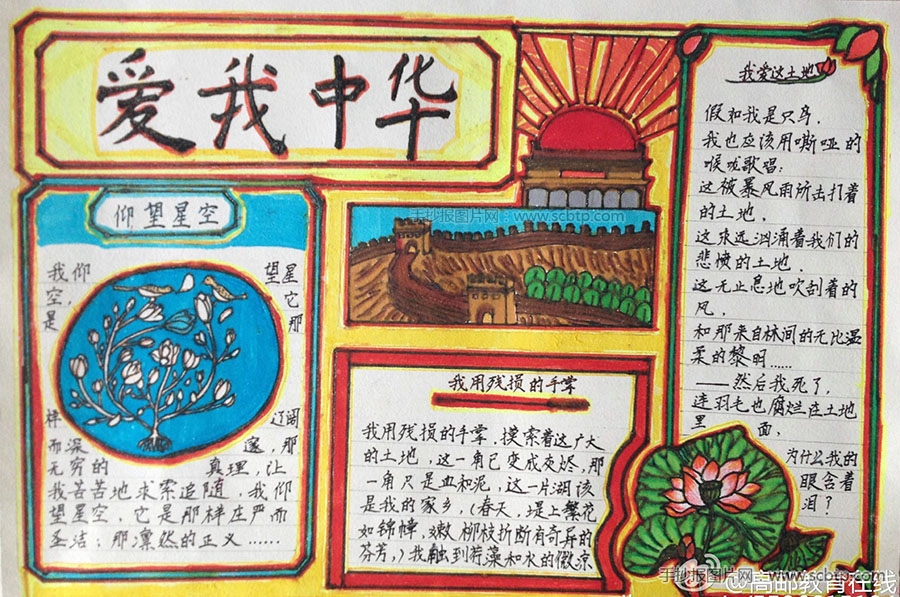 爱我中华
仰望星空
我仰 望星
空, 它
是 那
样 辽阔
而深 邃,那
无穷的 真理,让
我苦苦地求索追随,我仰
望星空,它是那样庄严而
圣洁;那凛然的正义……
手抄报图片网:www.scbtp.com
我用残损的手掌
我用残损的手掌,摸索着这广大
的土地,这一角已变成灰烬,那
一角只是血和泥,这一片湖该
是我的家乡,(春天,堤上繁花
如锦幛,嫩柳枝折断有奇异的
芬芳,)我触到荇藻和水的微凉
我爱这土地
假如我是只鸟,
我也应该用嘶哑的
喉咙歌唱:
这被暴风雨所击打着
的土地,
这永远汹涌着我们的
悲愤的土地,
这无止息地吹刮着的
风,
和那来自林间的无比温
柔的黎明……
——然后我死了,
连羽毛也腐烂在土地
里 面,
为什么我的
眼含着
泪?
手抄报图片网:www.scbtp.com
@高邮教育在线